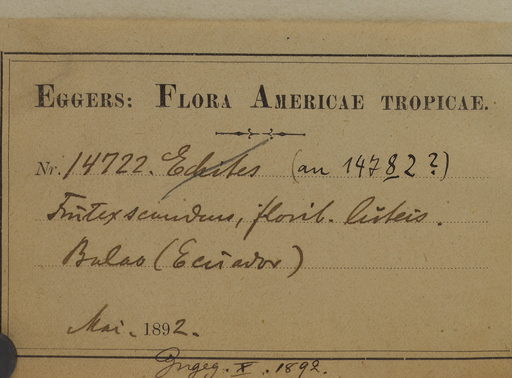 EGGERS: FLORA AMERICAE TROPICAE.
Nr. 14722. Echites (an 14782?)
Frutex scandens, florib. luteis.
Balao (Ecuador)
Mai. 1892.
Ungeg. X. 1892.